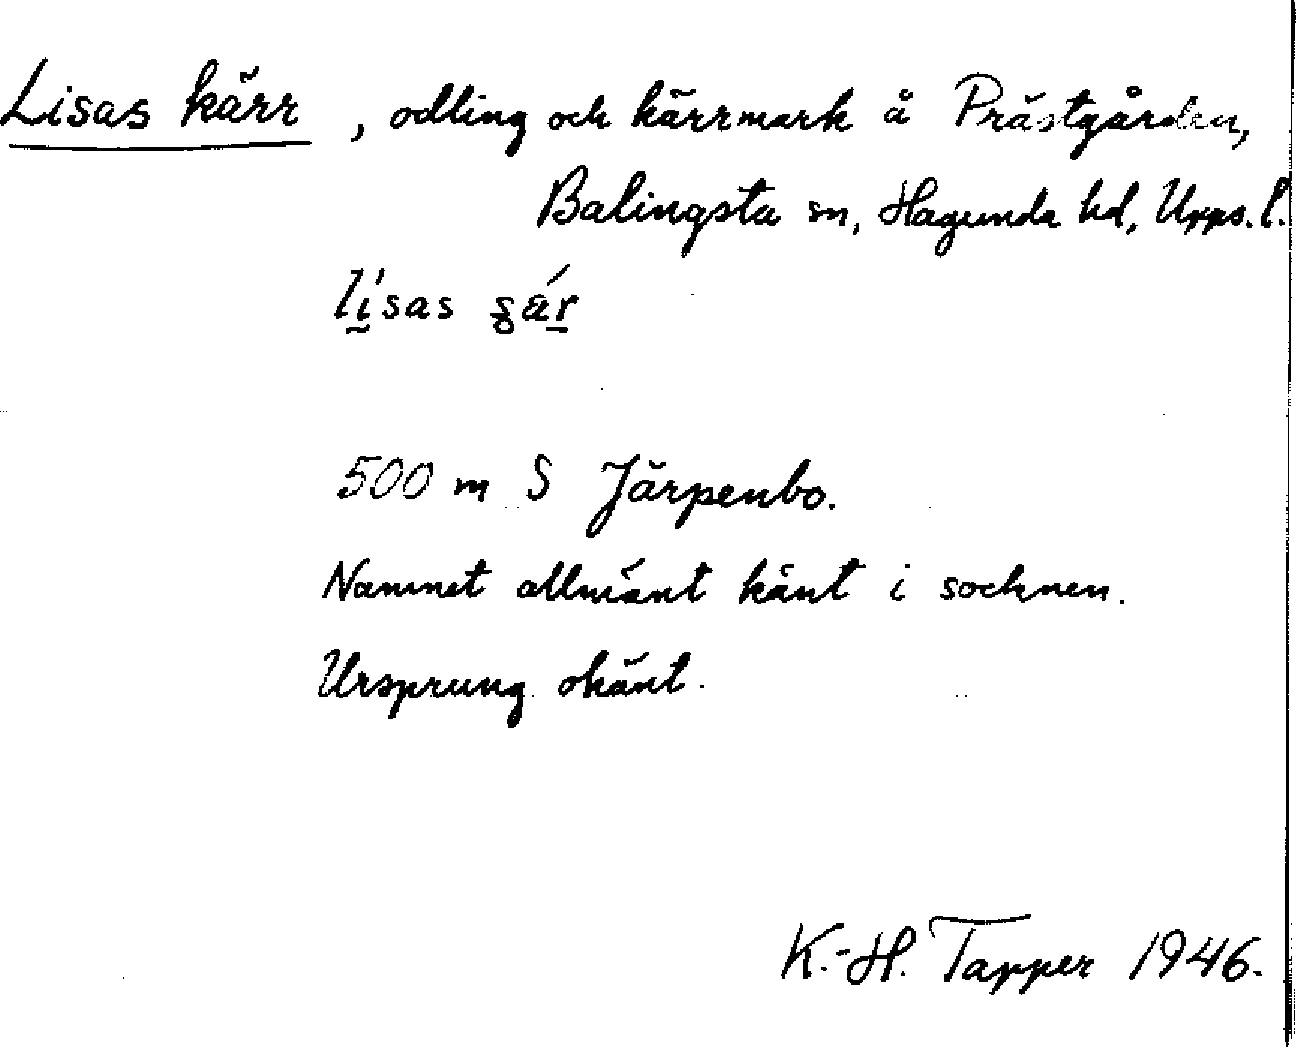 Lisas kärr, odling och kärrmark å Prästgården,
Balingsta sn, Hagunda hd, Upps. l.
lísas
500 m S Järpenbo.
Namnet allmänt känt i socknen.
Ursprung okänt.
K.-H. Tapper 1946.